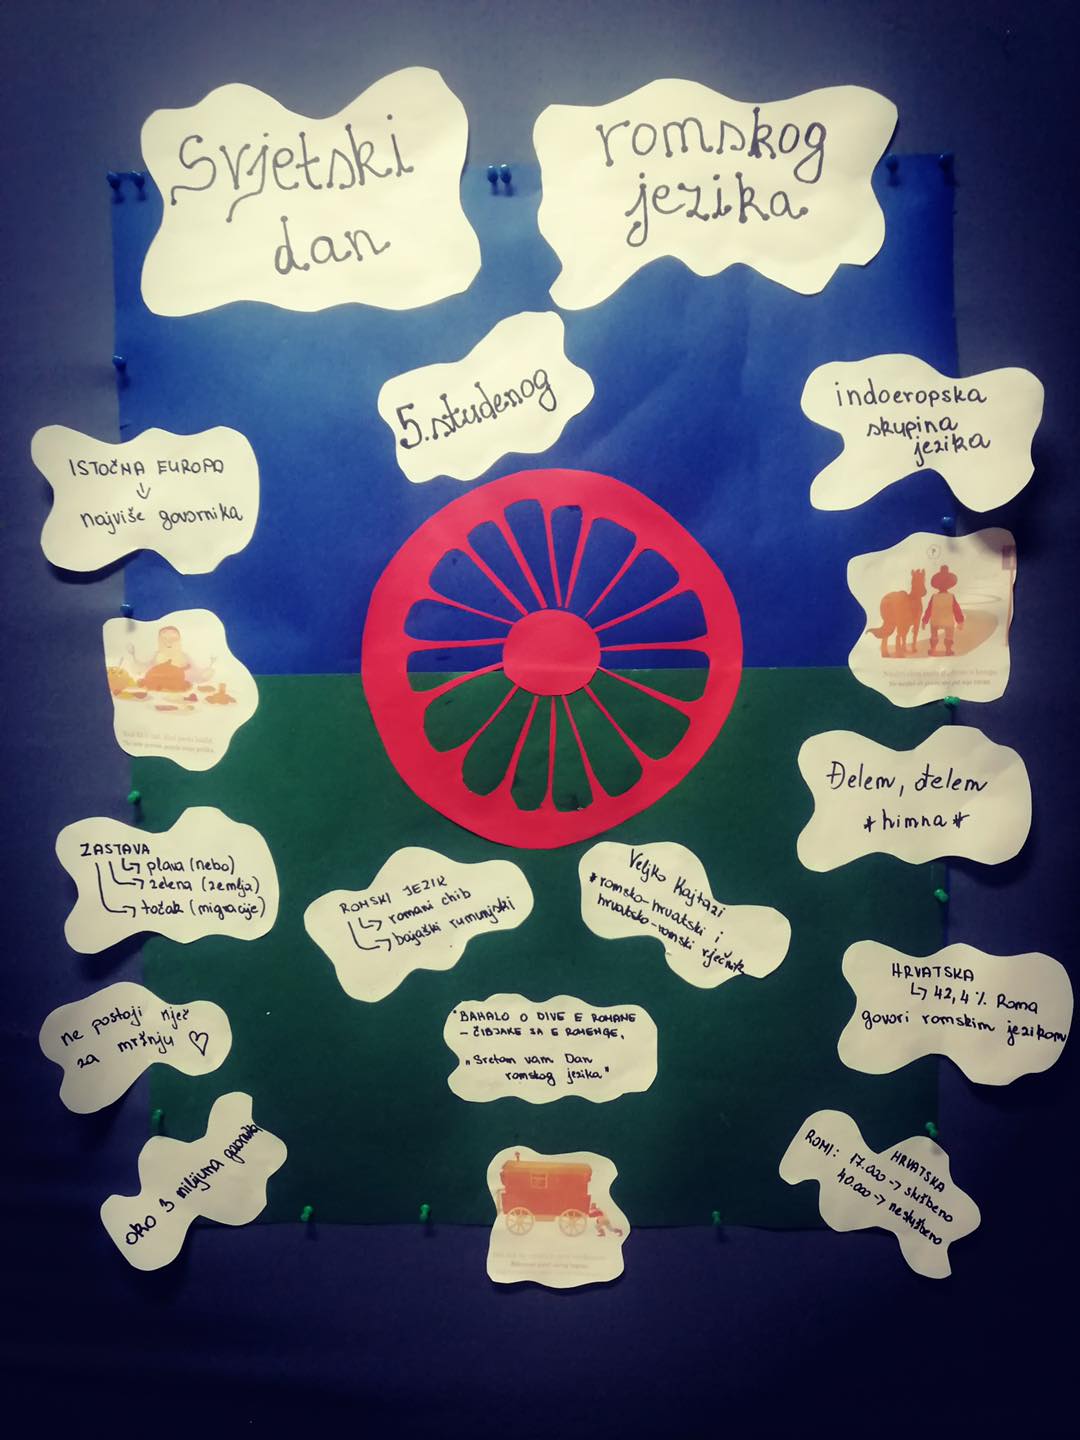 Svjetski
dan
romskog
jezika
5. studenog
indoeropska
skupina
jezika
ISTOČNA EUROPA
najviše govornika
Đelem, đelem
*himna*
ZASTAVA
plava (nebo)
zelena (zemlja)
točak (migracije)
ROMSKI JEZIK
romani chib
bajaški rumunjski
Veljko Kajtazi
*romsko-hrvatski i
hrvatsko-romski rječnik
HRVATSKA
42,4% Roma
govori romskim jezikom
ne postoji riječ
za mržnju
"BAHALO O DIVE E ROMANE
- ČIBJAKE SA E ROMENGE,
"Sretan vam Dan
romskog jezika"
oko 3 milijuna govornika
HRVATSKA
ROMI: 17.000 -> službeno
40.000 -> neslužbeno